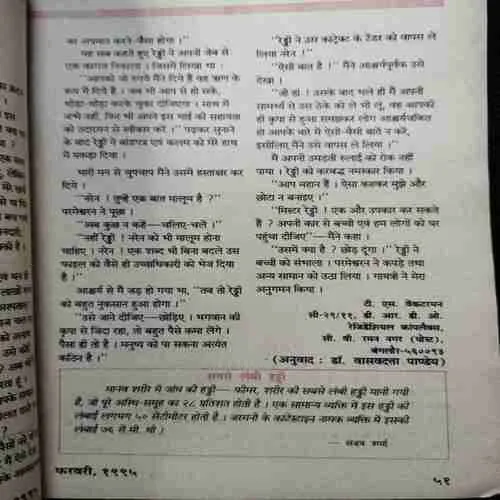 का अपमान करने जैसा होगा ।"
यह सब कहते हुए रेड्डी ने अपनी जेब से
एक कागज निकाला । जिसमें लिखा था ।
"आपको जो रुपये मैंने दिये हैं वह ऋण के
रूप में दिये हैं । जब भी आप से हो सके,
थोड़ा-थोड़ा करके चुका दीजिएगा । साथ में
जन्मे नहीं, फिर भी अपने इस भाई की सहायता
को उदारमन से स्वीकार करें ।" पढ़कर सुनाने
के बाद रेड्डी ने कागज एवं कलम को मेरे हाथ
में पकड़ा दिया ।
भारी मन से चुपचाप मैंने उसमें हस्ताक्षर कर
दिये ।
"नरेन ! तुम्हें एक बात मालूम है ?"
परमेश्वरन ने पूछा ।
"अब कुछ न कहें—चलिए-चलें ।"
"नहीं रेड्डी ! नरेन को भी मालूम होना
चाहिए । नरेन ! एक शब्द भी बिना बदले उस
फाइल को वैसे ही उच्चाधिकारी को भेज दिया
है ।"
आश्चर्य से मैं जड़ हो गया था, "तब तो रेड्डी
को बहुत नुकसान हुआ होगा ।"
"उसे जाने दीजिए—छोड़िए । भगवान की
कृपा से जिंदा रहा, तो बहुत पैसे कमा लेंगे ।
पैसा ही तो है । मनुष्य को पा सकना अत्यंत
कठिन है ।"
"रेड्डी ने उस कांट्रेक्ट के टेंडर को वापस ले
लिया नरेन !"
"ऐसी बात है !" मैंने आश्चर्यपूर्वक उसे
देखा ।
"जी हां ! उसके बाद भले ही मैं अपनी
सामर्थ्य से उस ठेके को ले भी लूं, वह आपकी
ही कृपा से हुआ समझकर लोग आश्चर्यचकित
हो आपके बारे में ऐसी-वैसी बातें न करें,
इसीलिए मैंने उसे वापस ले लिया ।"
मैं अपनी उमड़ती रुलाई को रोक नहीं
पाया । रेड्डी को करबद्ध नमस्कार किया ।
"आप महान हैं । ऐसा कहकर मुझे और
छोटा न बनाइए ।"
"मिस्टर रेड्डी ! एक और उपकार कर सकते
हैं ? अपनी कार से बच्ची एवं हम लोगों को घर
पहुंचा दीजिए"—मैंने कहा ।
"उसमें क्या है ? छोड़ दूंगा ।" रेड्डी ने
बच्ची को संभाला । परमेश्वरन ने कपड़े तथा
अन्य सामान को उठा लिया । गायत्री ने मेरा
अनुगमन किया ।
टी. एस. वेंकटरमन
सी-२९/१२, डी. आर. डी. ओ.
रेजिडेंशियल कांपलैक्स,
सी. वी. रमन नगर (पोस्ट),
बंगलौर-५६००९३
(अनुवाद : डॉ. वासवदत्ता पाण्डेय)
सबसे लंबी हड्डी
मानव शरीर में जांघ की हड्डी— फीमर, शरीर की सबसे लंबी हड्डी मानी गयी
है, जो पूरे अस्थि-समूह का २८ प्रतिशत होती है । एक सामान्य व्यक्ति में इस हड्डी की
लंबाई लगभग ५० सेंटीमीटर होती है । जरमनी के कांस्टेंटाइन नामक व्यक्ति में इसकी
लंबाई ७६ सें. मी. थी ।
फरवरी, १९९५
५१